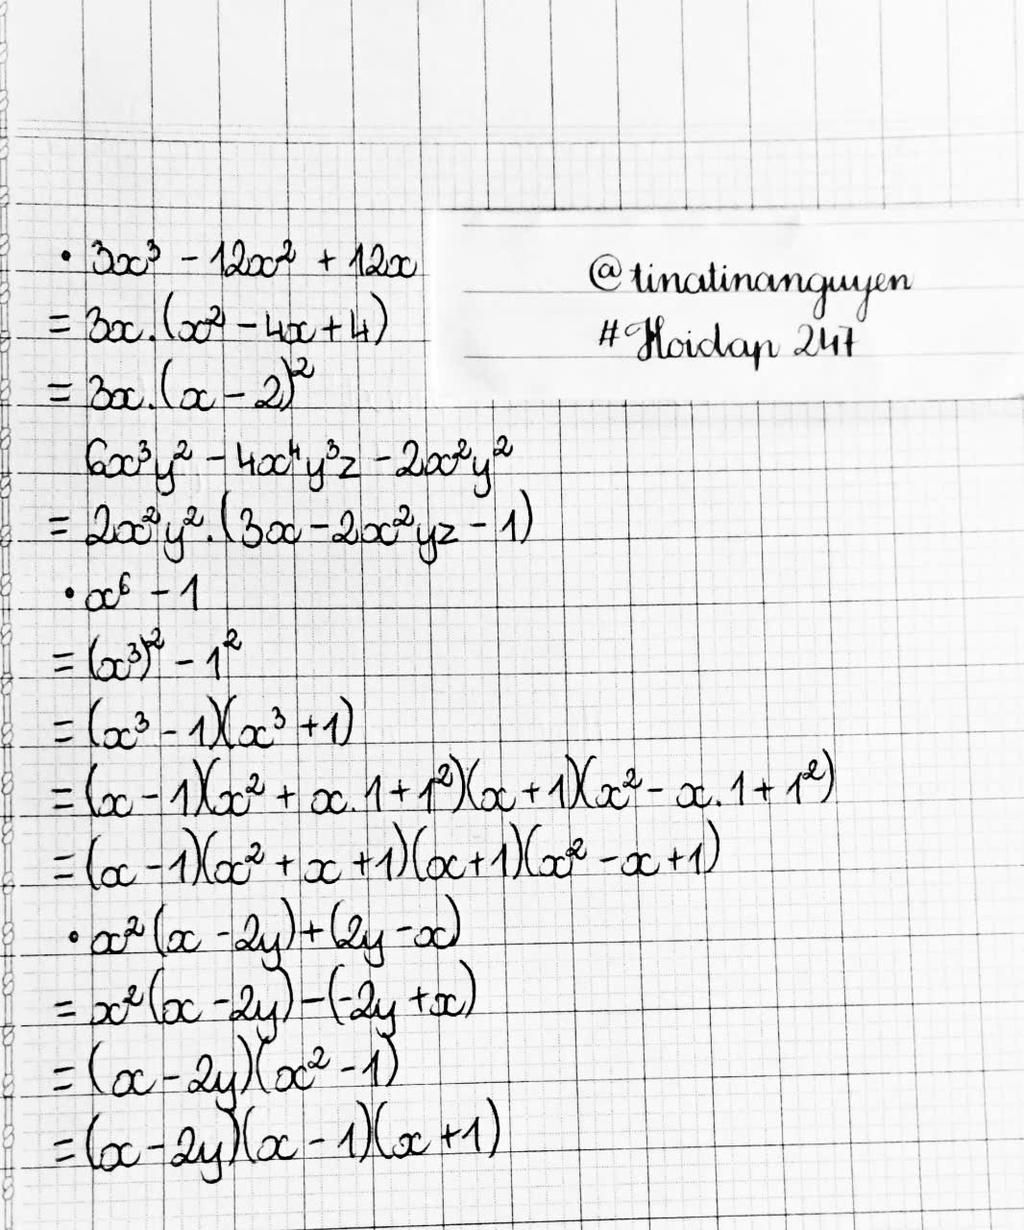 • 3x³ - 12x² + 12x
= 3x.(x² - 4x + 4)
= 3x.(x - 2)²
6x³y² - 4x⁴y³z - 2x²y²
= 2x²y².(3x - 2x²yz - 1)
• x⁶ - 1
= (x³)² - 1²
= (x³ - 1)(x³ + 1)
= (x - 1)(x² + x.1 + 1²)(x + 1)(x² - x.1 + 1²)
= (x - 1)(x² + x + 1)(x + 1)(x² - x + 1)
• x²(x - 2y) + (2y - x)
= x²(x - 2y) - (-2y + x)
= (x - 2y)(x² - 1)
= (x - 2y)(x - 1)(x + 1)
@tinatinanguyen
#Hoidap 247